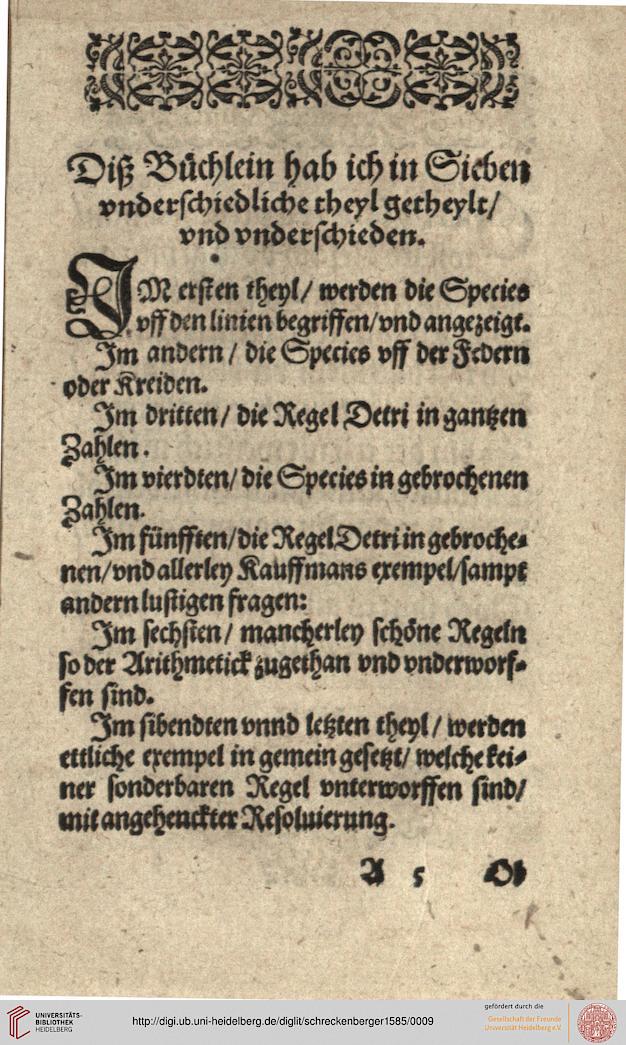 Diß Büchlein hab ich in Sieben
vnderschiedliche theyl getheylt/
vnd vnderschieden.
IM ersten theyl/ werden die Species
vff den linien begriffen/ vnd angezeigt.
Im andern / die Species vff der Federn
oder Kreiden.
Im dritten/ die Regel Detri in gantzen
Zahlen.
Im vierdten/ die Species in gebrochenen
Zahlen.
Im fünfften/ die Regel Detri in gebroche⸗
nen/ vnd allerley Kauffmans exempel/ sampt
andern lustigen fragen:
Im sechsten / mancherley schöne Regeln
so der Arithmetick zugethan vnd vnderworf⸗
fen sind.
Im sibendten vnnd letzten theyl / werden
ettliche exempel in gemein gesetzt/ welche kei⸗
ner sonderbaren Regel vnterworffen sind/
mit angehenckter Resoluierung.
A 5 Ob
UNIVERSITÄTS-
BIBLIOTHEK
HEIDELBERG
http://digi.ub.uni-heidelberg.de/diglit/schreckenberger1585/0009
gefördert durch die
Gesellschaft der Freunde
Universität Heidelberg e.V.